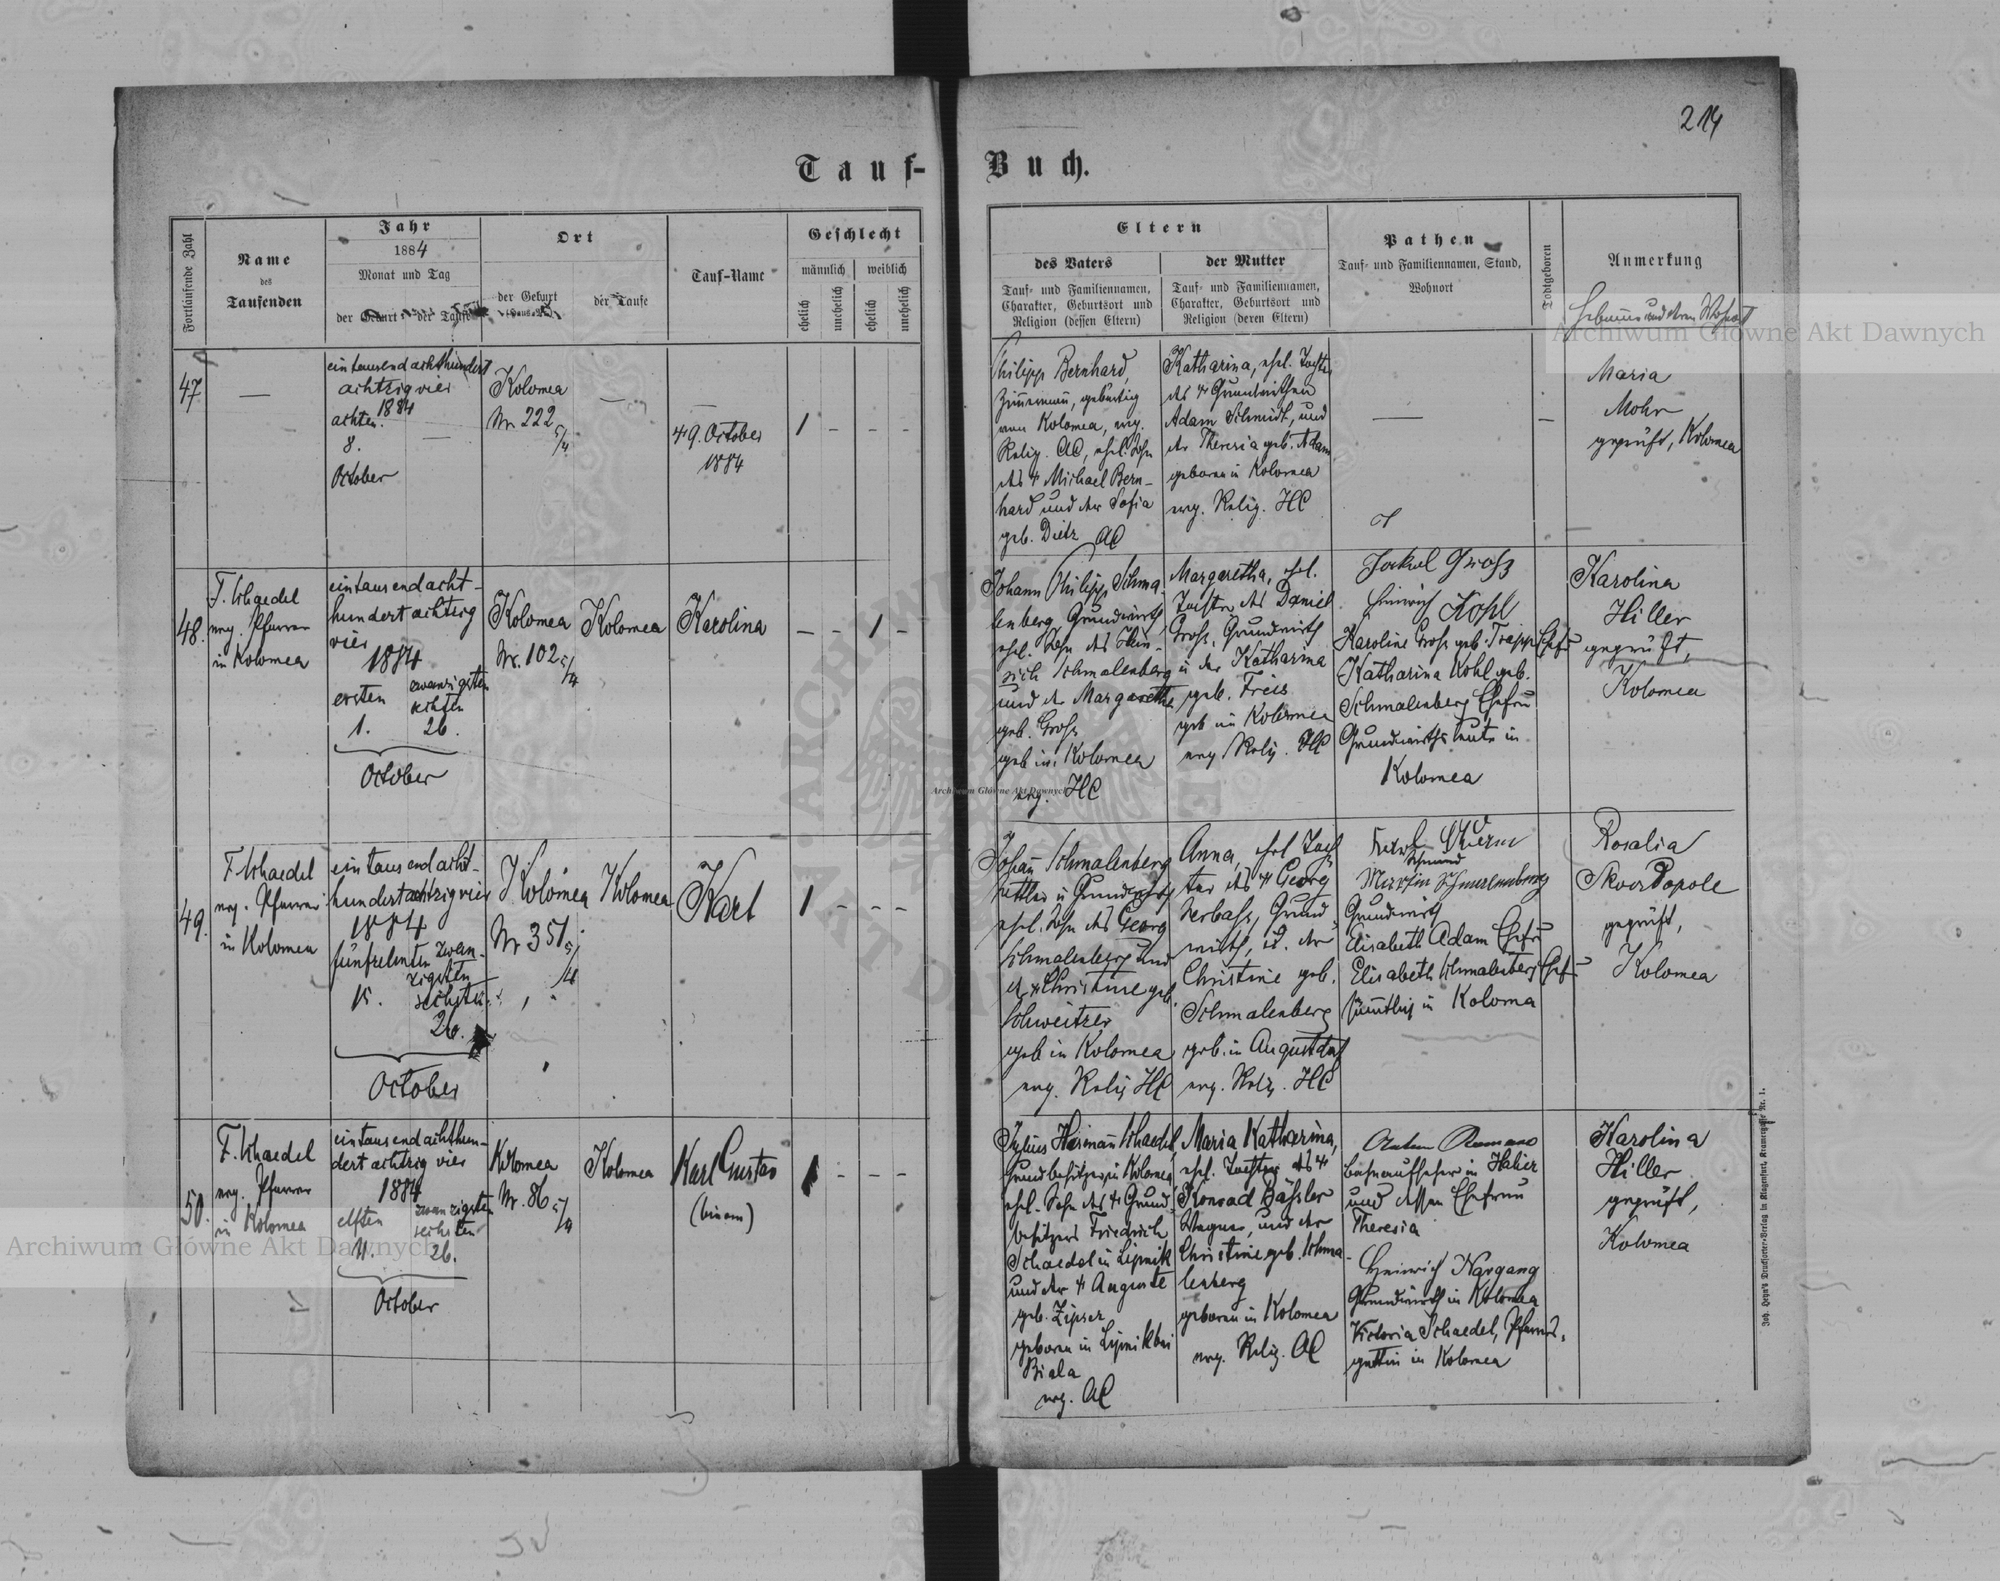 214
Tauf-Buch.
Fortlaufende Zahl
Name
des
Taufenden
Jahr
1884
Monat und Tag
der Geburt
der Taufe
Ort
der Geburt
(Haus-Nr.)
der Taufe
Tauf-Name
Geschlecht
männlich
weiblich
ehelich
unehelich
ehelich
unehelich
Eltern
des Vaters
Tauf- und Familiennamen,
Charakter, Geburtsort und
Religion (dessen Eltern)
der Mutter
Tauf- und Familiennamen,
Charakter, Geburtsort und
Religion (deren Eltern)
Pathen
Tauf- und Familiennamen, Stand,
Wohnort
Todtgeboren
Anmerkung
Hebamme und deren Wohnort
47
—
eintausendachthundert
achtzigvier
1884
achten.
8.
—
October
Kolomea
Nr. 222
5/4
—
—
† 9. October
1884
1 - - -
Philipp Bernhard,
Zimmermann, gebürtig
von Kolomea, evg.
Relig. AC, ehel. Sohn
des † Michael Bern-
hard und der Sofia
geb. Dietz AC
Katharina, ehel. Tochter
des † Grundwirthen
Adam Schmidt, und
der Theresia geb. Adam
geboren in Kolomea
evg. Relig. HC
—
—
Maria
Mohr
geprüft, Kolomea
48.
F. Schaedel
evg. Pfarrer
in Kolomea
eintausendacht-
hundert achtzig
vier
1884
ersten
1.
zwanzigsten
sechsten
26.
October
Kolomea
Nr. 102
5/4
Kolomea
Karolina
- - 1 -
Johann Philipp Schma-
lenberg, Grundwirth,
ehel. Sohn des Hein-
rich Schmalenberg
und der Margaretha
geb. Gross
geb in Kolomea
evg. HC
Margaretha, ehel.
Tochter des Daniel
Gross, Grundwirth
u der Katharina
geb. Freis
geb in Kolomea
evg Relig. HC
Jakob Gross
Heinrich Kohl
Karoline Gross geb. Trapp Ehefr
Katharina Kohl geb.
Schmalenberg Ehefr
Grundwirthsleute in
Kolomea
Karolina
Hiller
geprüft,
Kolomea
49.
F. Schaedel
evg. Pfarrer
in Kolomea
eintausendacht-
hundertachtzigvier
1884
fünfzehnten
15.
zwan-
zigsten
sechsten
26.
October
Kolomea
Nr 351
5/4
Kolomea
Karl
1 - - -
Johann Schmalenberg
Sattler u Grundwirth
ehel. Sohn des Georg
Schmalenberg und
d. † Christine geb.
Schweitzer
geb in Kolomea
evg. Relig HC
Anna, ehel Toch-
ter des † Georg
Serbass, Grund-
wirth, u. der
Christine geb.
Schmalenberg
geb. in Augustdorf
evg. Relig. HC
Martin Schmalenberg
Grundwirth
Elisabeth Adam Ehefr
Elisabeth Schmalenberg Ehefr
sämmtlich in Kolomea
Rosalia
Skoropole
geprüft,
Kolomea
50.
F. Schaedel
evg. Pfarrer
in Kolomea
eintausendachthun-
dert achtzig vier
1884
elften
11.
zwanzigsten
sechsten
26.
October
Kolomea
Nr. 86
5/4
Kolomea
Karl Gustav
(binom)
1 - - -
Julius Hermann Schaedel,
Grundbesitzer in Kolomea
ehel. Sohn des † Grund-
besitzers Friedrich
Schaedel in Lipnik
und der † Auguste
geb. Zipser
geboren in Lipnik bei
Biala
evg. AC
Maria Katharina,
ehel. Tochter des †
Konrad Bässler
Wagner, und der
Christine geb. Schma-
lenberg
geboren in Kolomea
evg. Relig. AC
Bahnaufseher in Halicz
und dessen Ehefrau
Theresia
Heinrich Nargang
Grundwirth in Kolomea
Victoria Schaedel, Pfarrers-
gattin in Kolomea
Karolina
Hiller
geprüft,
Kolomea
Joh. Heyn's Drucksorten-Verlag in Klagenfurt, Kramergasse Nr. 1.
Archiwum Główne Akt Dawnych
Archiwum Główne Akt Dawnych
Archiwum Główne Akt Dawnych